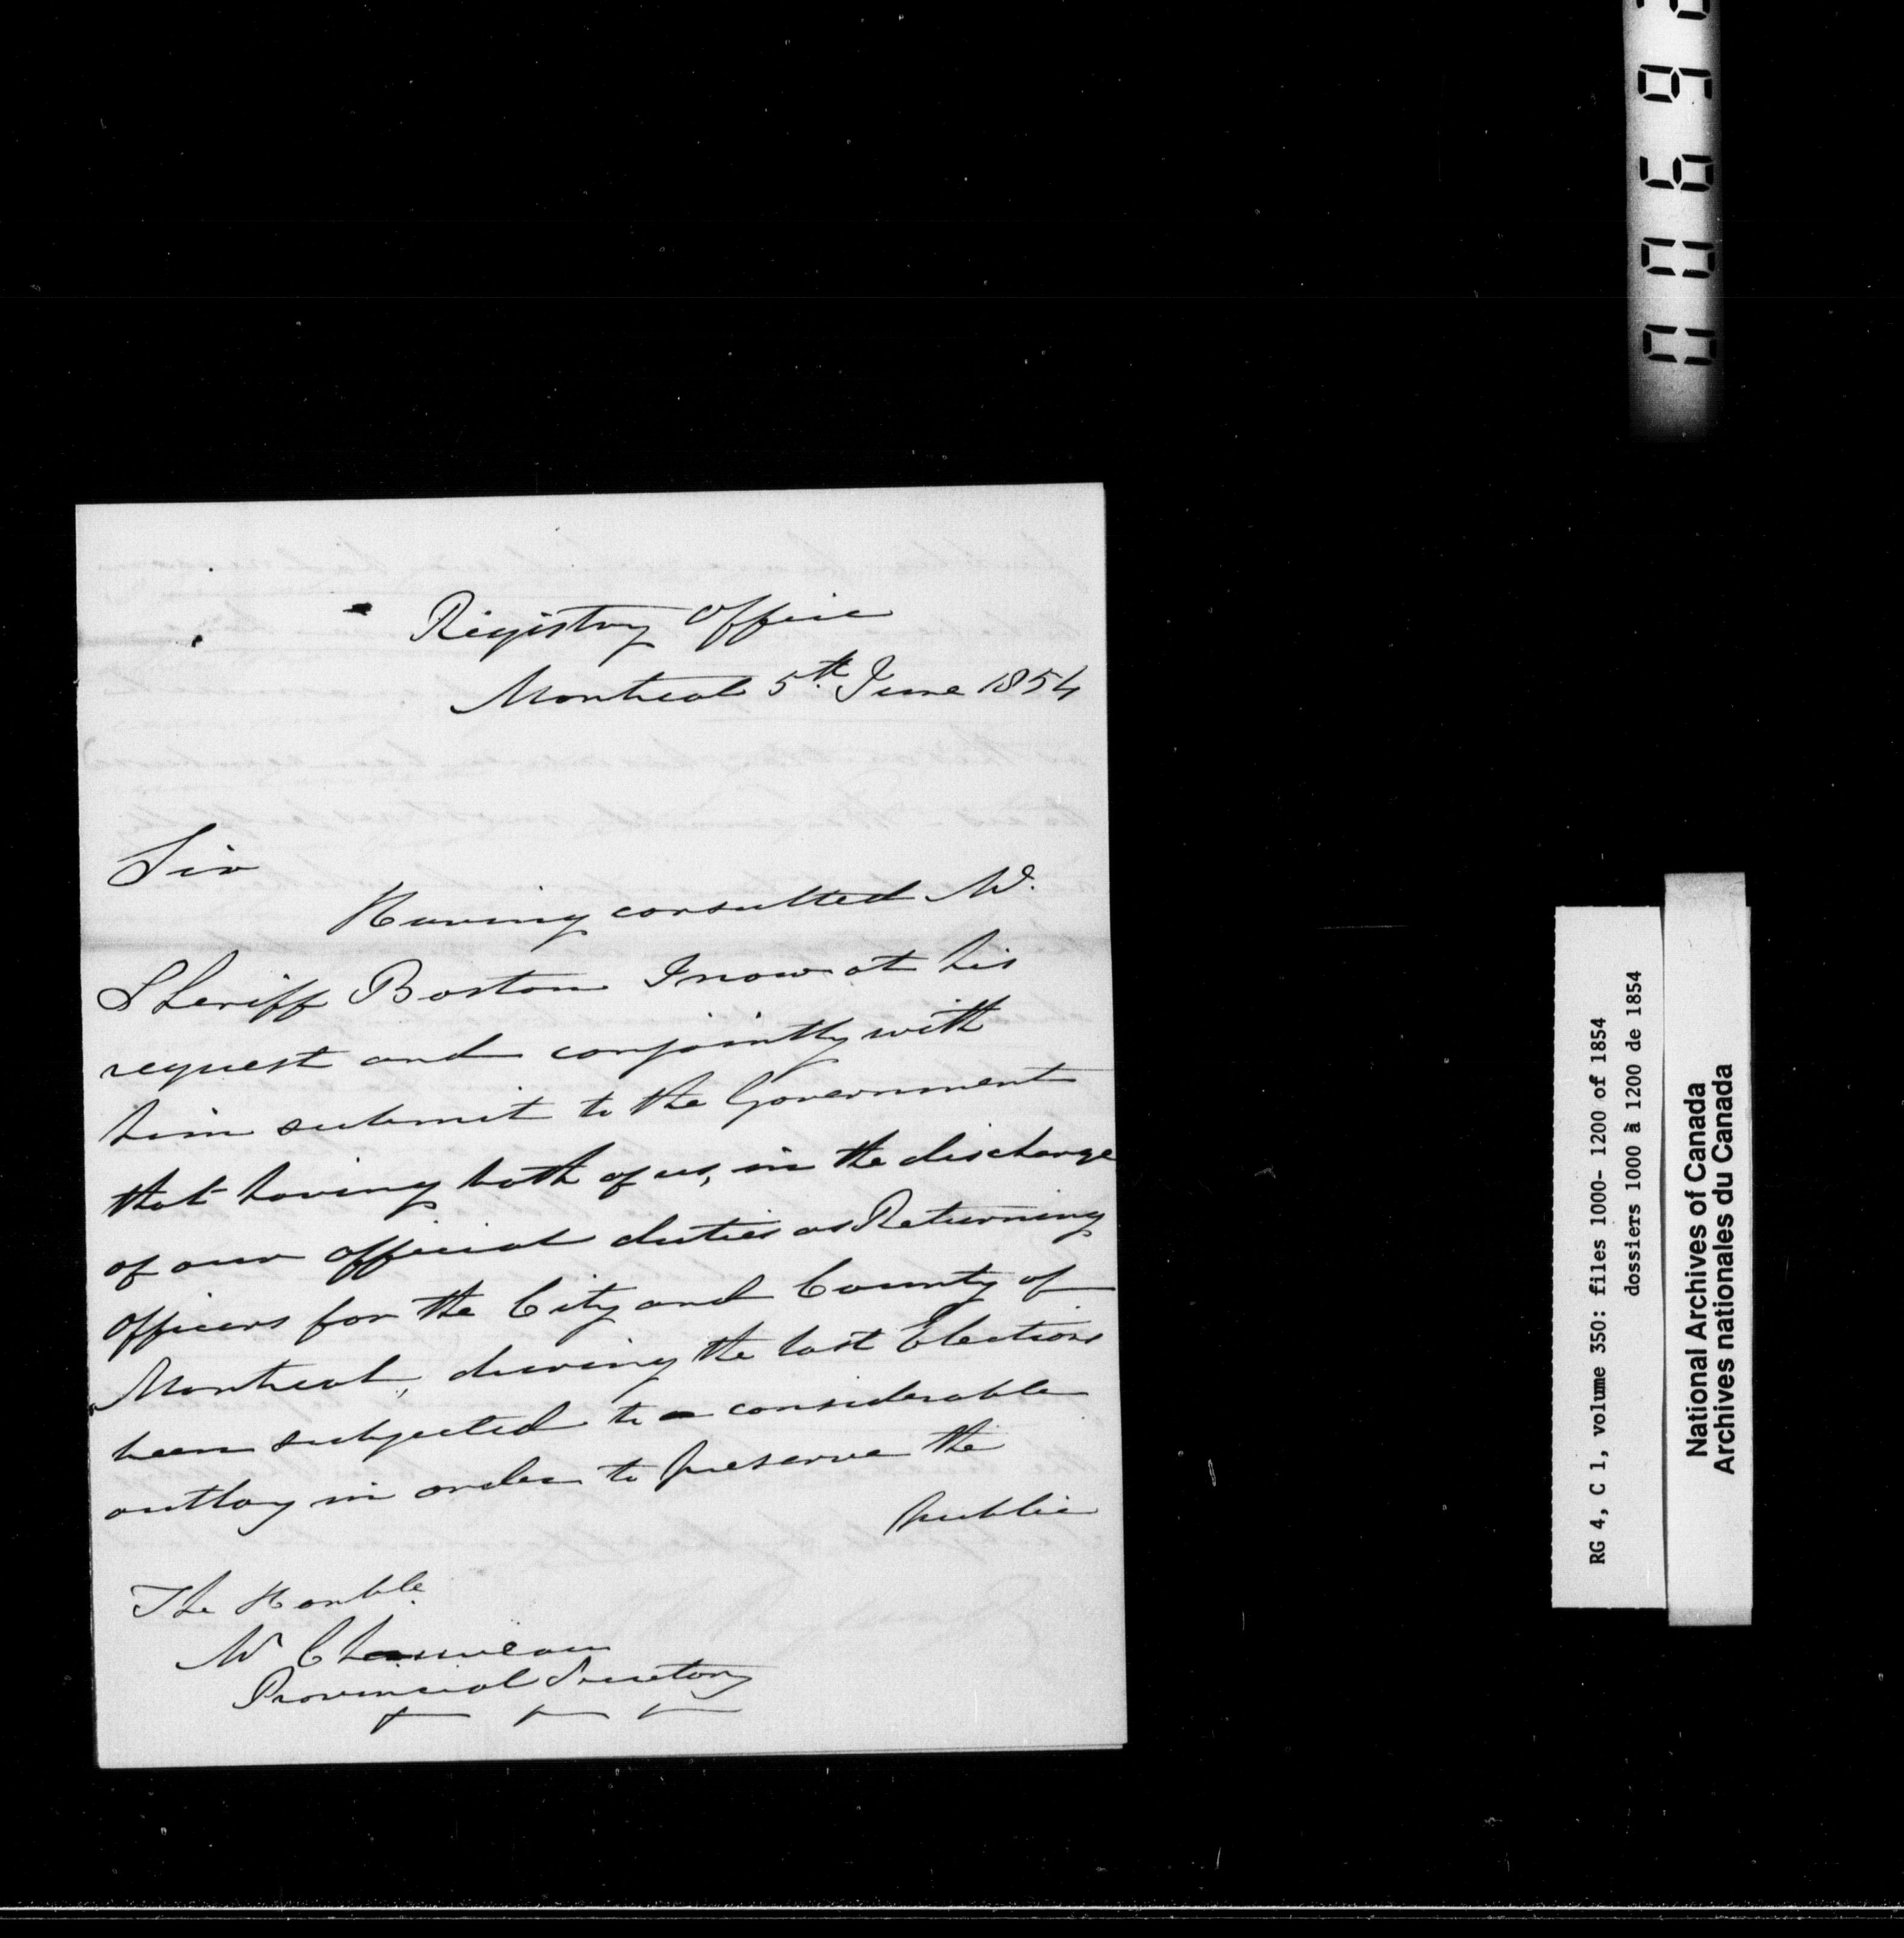 Registry Office
Montreal 5th June 1854
Sir
Having consulted Mr.
Sheriff Boston I now at his
request and conjointly with
him submit to the Government
that having both of us, in the discharge
of our official duties as Returning
officers for the City and County of
Montreal, during the last Elections
been subjected to a considerable
outlay in order to preserve the
public
The Honble.
Mr Chauveau
Provincial Secretary
RG 4, C 1, volume 350: files 1000- 1200 of 1854
dossiers 1000 à 1200 de 1854
National Archives of Canada
Archives nationales du Canada